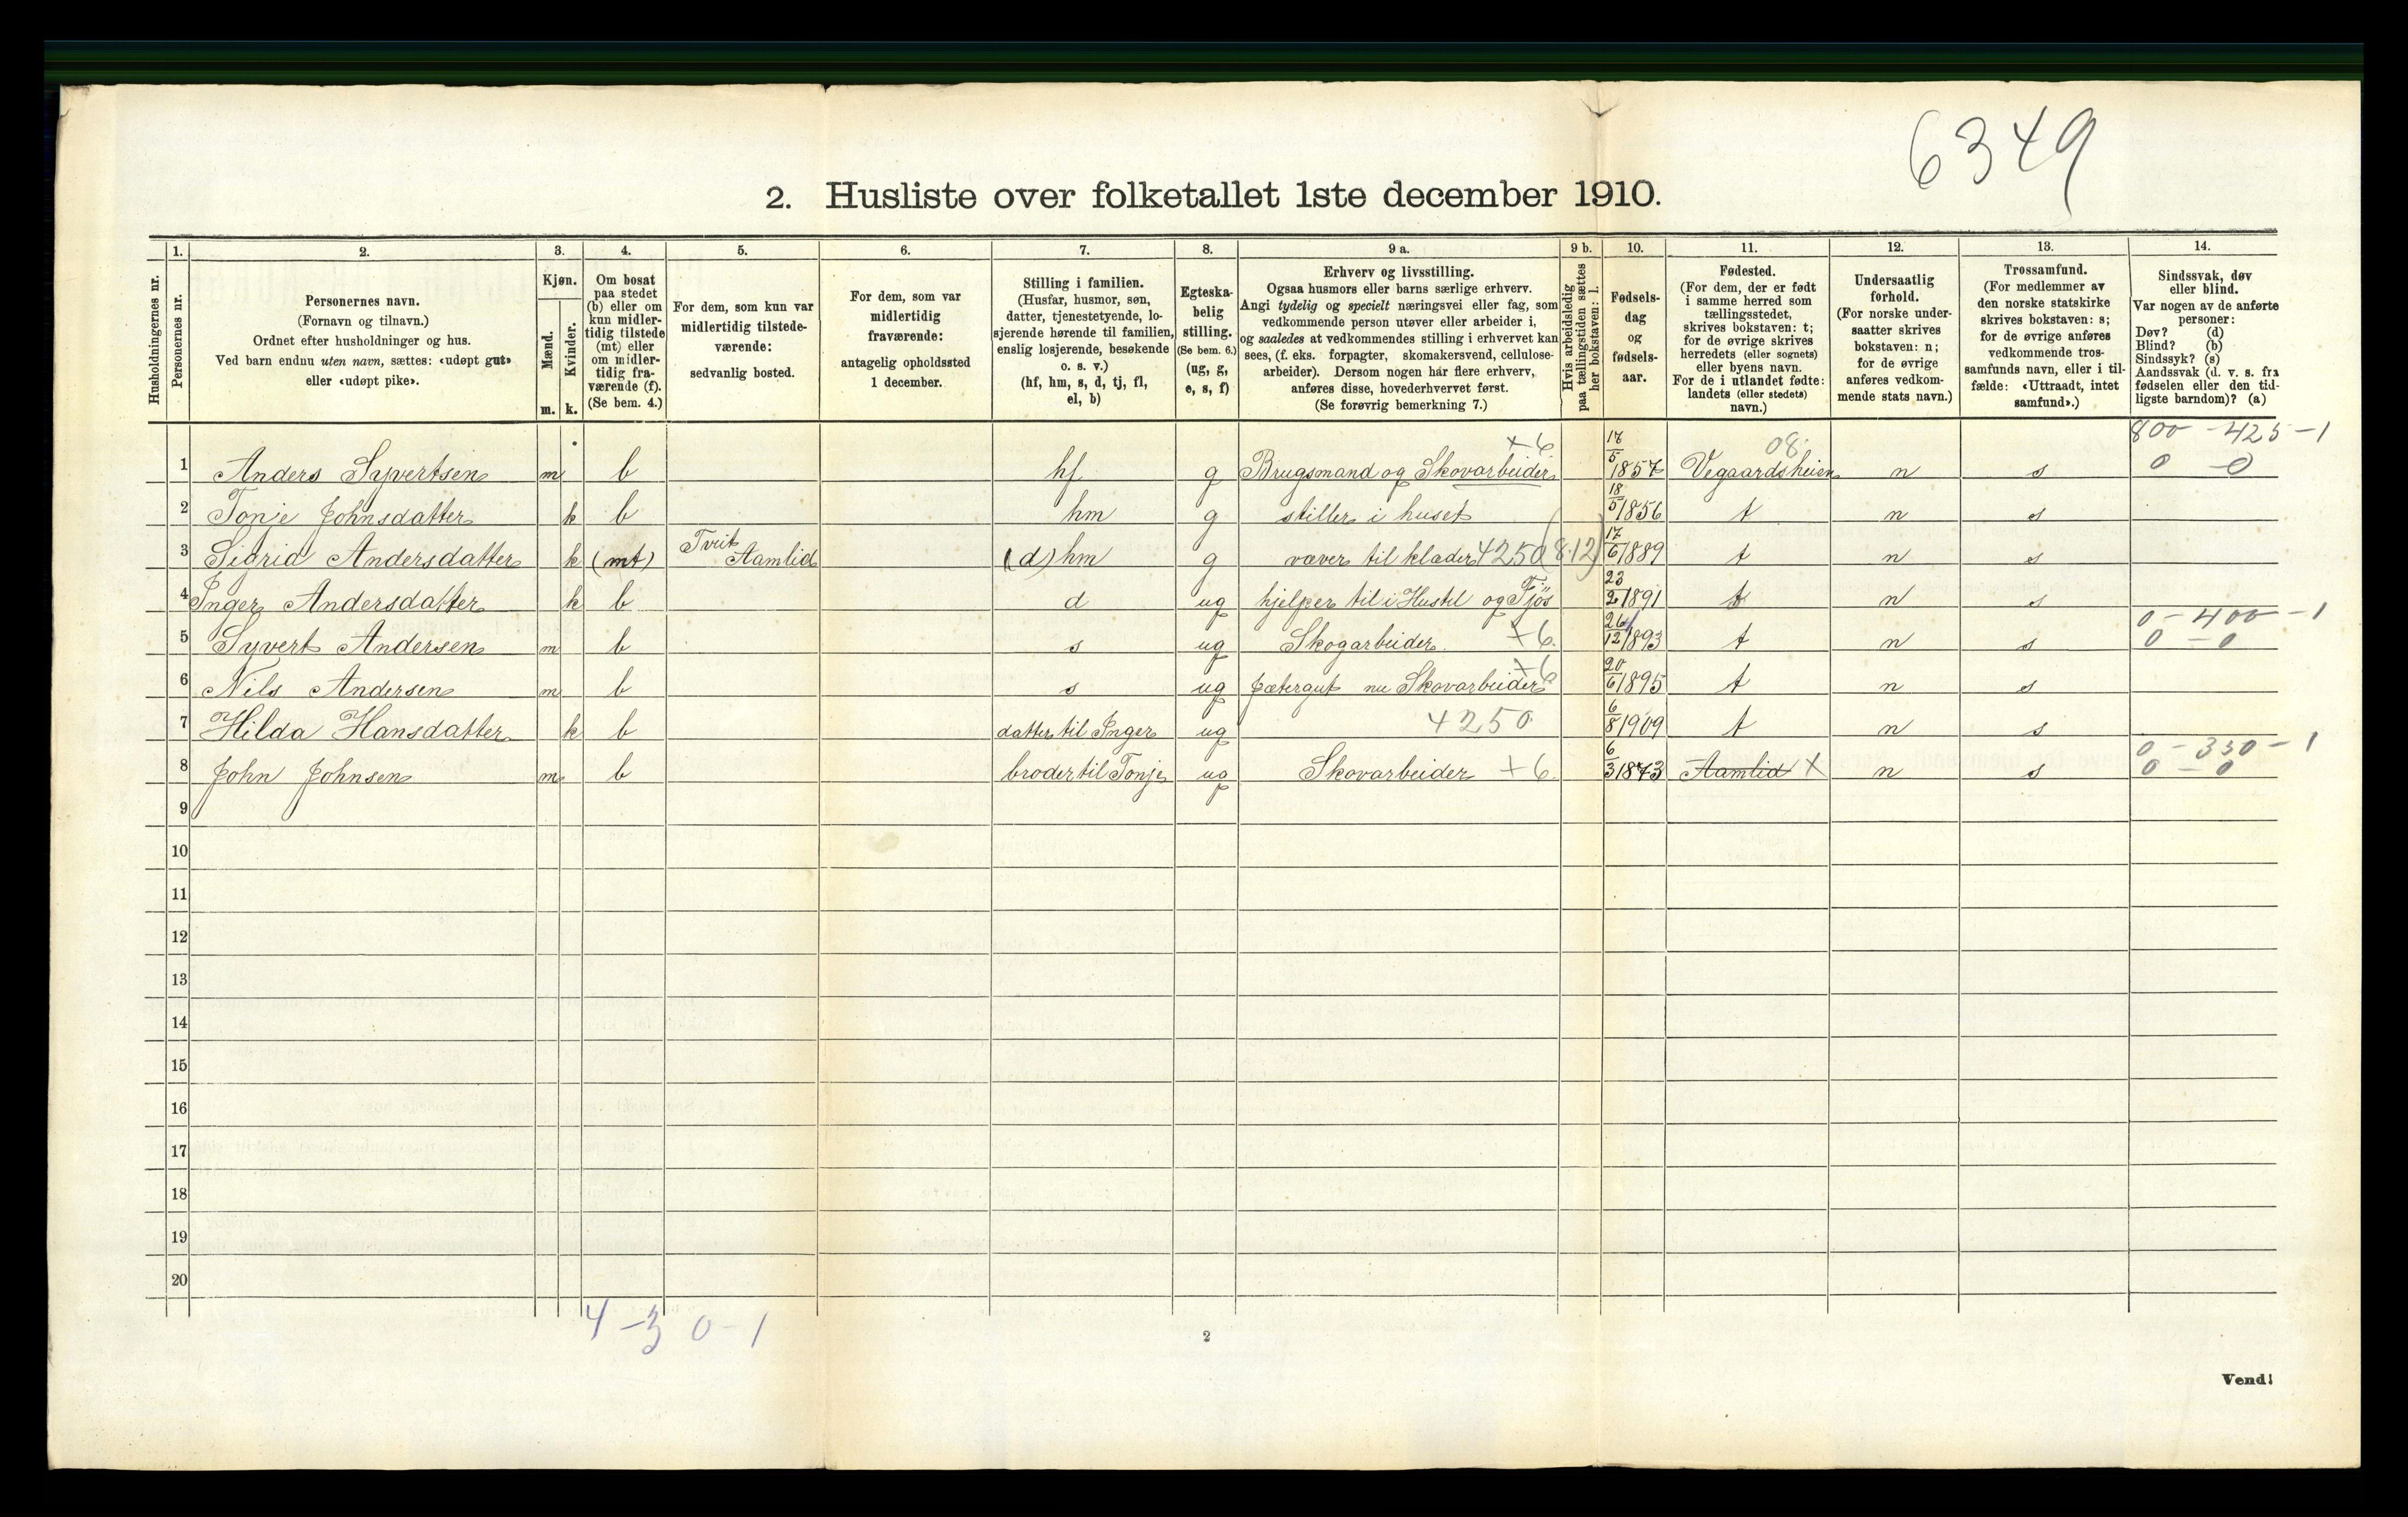 6349
2. Husliste over folketallet 1ste december 1910.
Husholdningernes nr.
1. Personernes nr.
2. Personernes navn.
(Fornavn og tilnavn.)
Ordnet efter husholdninger og hus.
Ved barn endnu uten navn, sættes: «udøpt gut»
eller «udøpt pike».
3. Kjøn.
Mænd. m.
Kvinder. k.
4. Om bosat
paa stedet
(b) eller om
kun midler-
tidig tilstede
(mt) eller
om midler-
tidig fra-
værende (f).
(Se bem. 4.)
5. For dem, som kun var
midlertidig tilstede-
værende:
sedvanlig bosted.
6. For dem, som var
midlertidig
fraværende:
antagelig opholdssted
1 december.
7. Stilling i familien.
(Husfar, husmor, søn,
datter, tjenestetyende, lo-
sjerende hørende til familien,
enslig losjerende, besøkende
o. s. v.)
(hf, hm, s, d, tj, fl,
el, b)
8. Egteska-
belig
stilling.
(Se bem. 6.)
(ug, g,
e, s, f)
9 a. Erhverv og livsstilling.
Ogsaa husmors eller barns særlige erhverv.
Angi tydelig og specielt næringsvei eller fag, som
vedkommende person utøver eller arbeider i,
og saaledes at vedkommendes stilling i erhvervet kan
sees, (f. eks. forpagter, skomakersvend, cellulose-
arbeider). Dersom nogen har flere erhverv,
anføres disse, hovederhvervet først.
(Se forøvrig bemerkning 7.)
9 b. Hvis arbeidsledig
paa tællingstiden sættes
her bokstaven: l.
10. Fødsels-
dag
og
fødsels-
aar.
11. Fødested.
(For dem, der er født
i samme herred som
tællingsstedet,
skrives bokstaven: t;
for de øvrige skrives
herredets (eller sognets)
eller byens navn.
For de i utlandet fødte:
landets (eller stedets)
navn.)
12. Undersaatlig
forhold.
(For norske under-
saatter skrives
bokstaven: n;
for de øvrige
anføres vedkom-
mende stats navn.)
13. Trossamfund.
(For medlemmer av
den norske statskirke
skrives bokstaven: s;
for de øvrige anføres
vedkommende tros-
samfunds navn, eller i til-
fælde: «Uttraadt, intet
samfund».)
14. Sindssvak, døv
eller blind.
Var nogen av de anførte
personer:
Døv? (d)
Blind? (b)
Sindssyk? (s)
Aandssvak (d. v. s. fra
fødselen eller den tid-
ligste barndom)? (a)
+6 08. 800 - 425 - 1
1 Anders Syvertsen m b hf g Brugsmand og Skovarbeider 5 1857 Vegaardsheien n s 0 - 0
2 Tonje Johnsdatter k b hm g stiller i huset 18/5 1856 t n s
3 Sigrid Andersdatter k (mt) Tveit Aamlid (d) hm g væver til klæder 4250 (8.12) 17/6 1889 t n s
4 Inger Andersdatter k b d ug hjelper til i Hustel og Fjös 23/2 1891 t n s
0 - 400 - 1
5 Syvert Andersen m b s ug Skogarbeider. +6 26/12 1893 t n s 0 - 0
6 Nils Andersen m b s ug gjætergut nu Skovarbeider +6 20/6 1895 t n s
7 Hilda Hansdatter k b datter til Inger ug 4250 6/8 1909 t n s
0 - 350 - 1
8 John Johnsen m b broder til Tonje ug Skovarbeider +6 6/3 1873 Aamlid X n s 0 - 0
9
10
11
12
13
14
15
16
17
18
19
20
4 - 3 0 - 1
2
Vend!